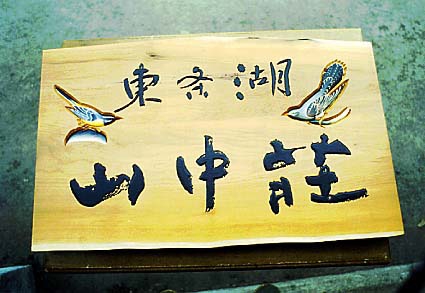 東条湖
山中荘